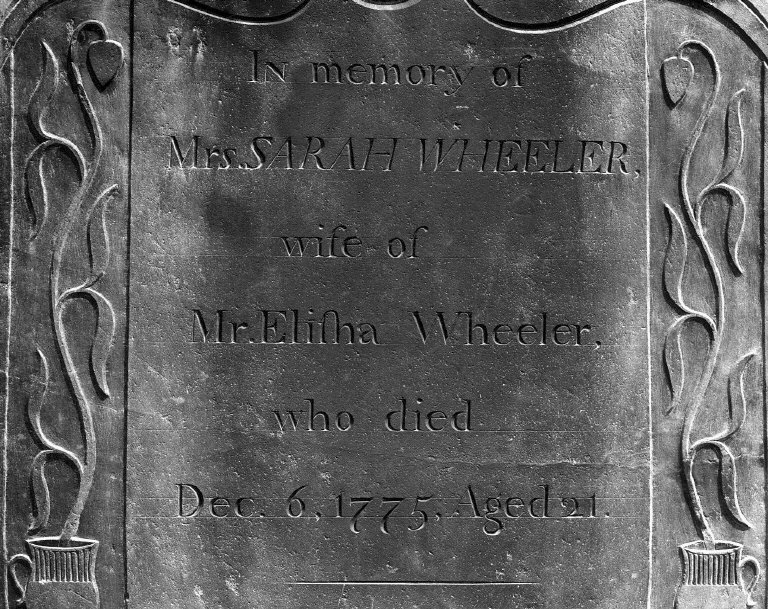 In memory of
Mrs. SARAH WHEELER,
wife of
Mr. Eliſha Wheeler,
who died
Dec. 6, 1775, Aged 21.